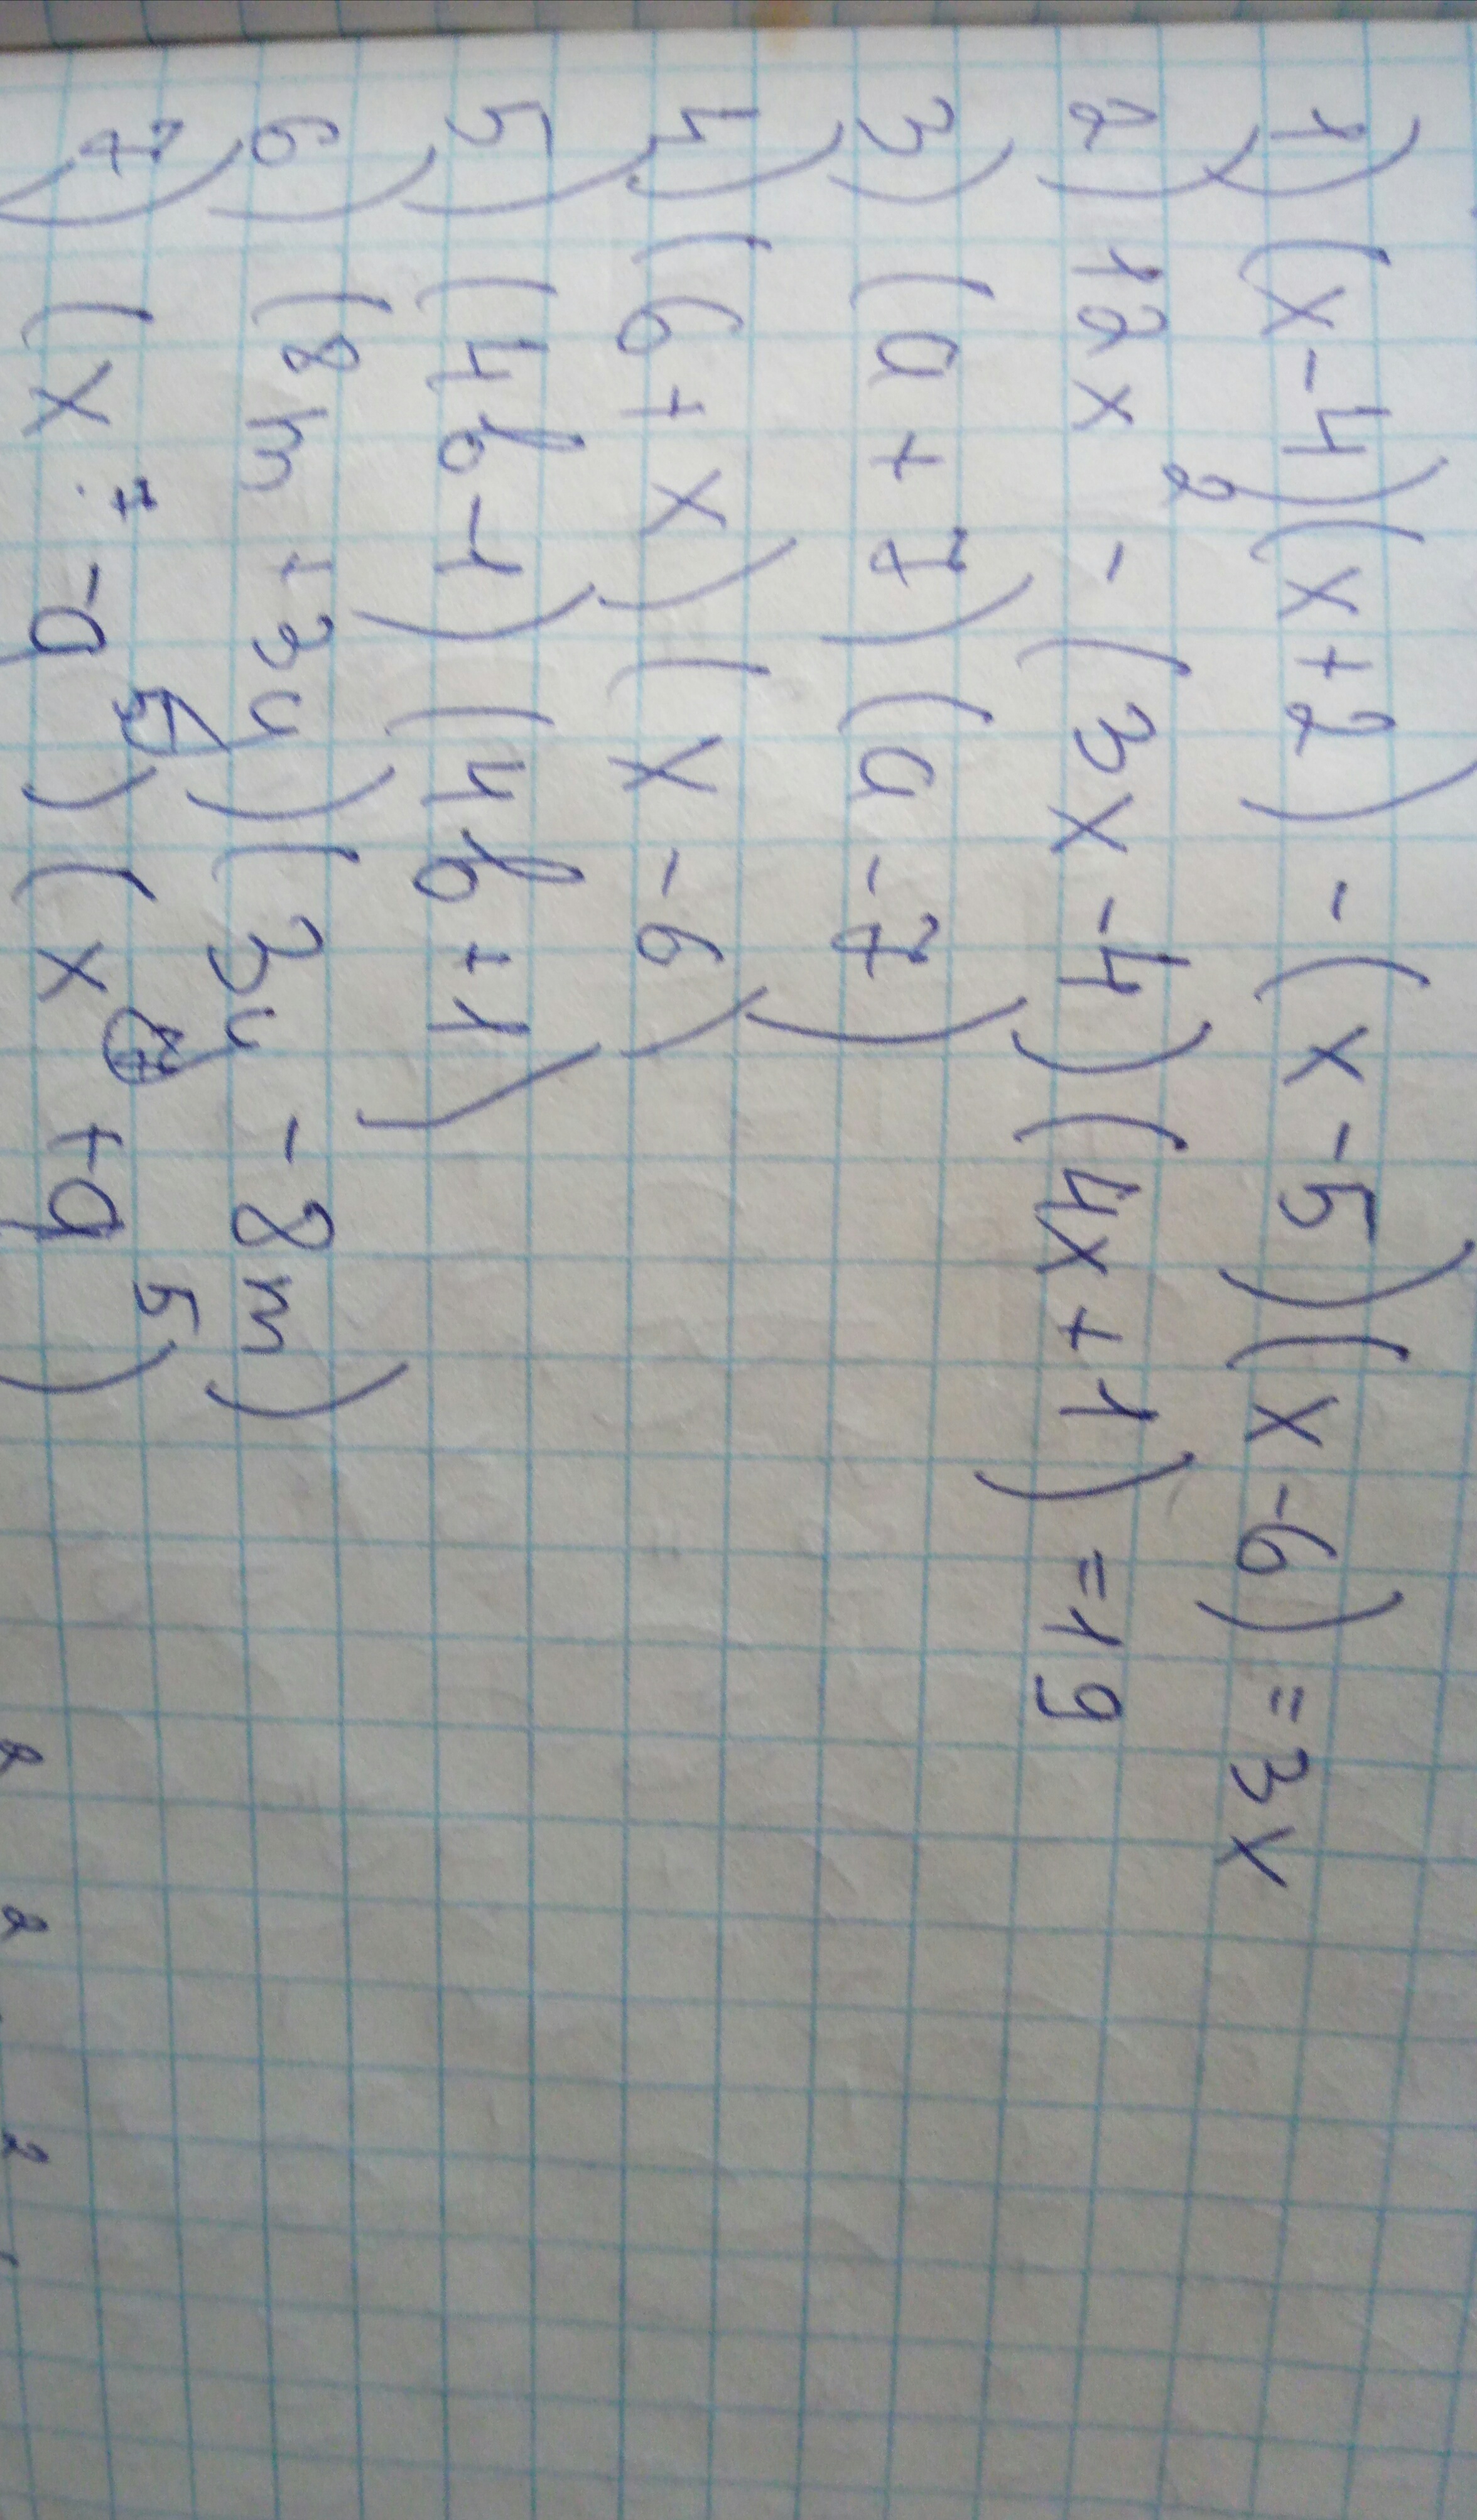 1) (x-4)(x+2) - (x-5)(x-6) = 3x
2) 12x² - (3x-4)(4x+1) = 19
3) (a+7)(a-7)
4) (6+x)(x-6)
5) (4b-1)(4b+1)
6) (8m+3y)(3y-8m)
7) (x⁷-q⁵)(x⁷+q⁵)